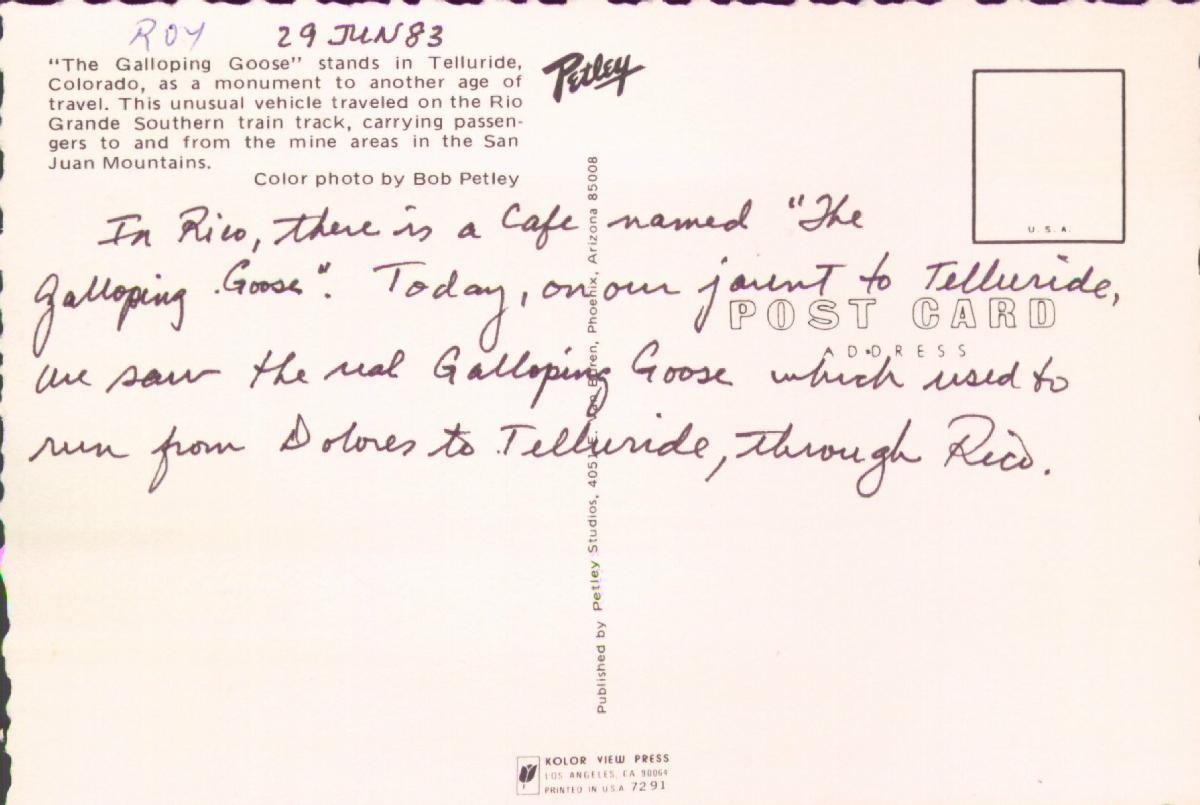 ROY 29 JUN 83
"The Galloping Goose" stands in Telluride,
Colorado, as a monument to another age of
travel. This unusual vehicle traveled on the Rio
Grande Southern train track, carrying passen-
gers to and from the mine areas in the San
Juan Mountains.
Color photo by Bob Petley
Petley
U.S.A.
In Rico, there is a Cafe named "The
Galloping Goose". Today, on our jaunt to Telluride,
we saw the real Galloping Goose which used to
run from Dolores to Telluride, through Rico.
POST CARD
ADDRESS
Published by Petley Studios, 4051 E. Van Buren, Phoenix, Arizona 85008
KOLOR VIEW PRESS
LOS ANGELES, CA 90064
PRINTED IN U.S.A. 7291